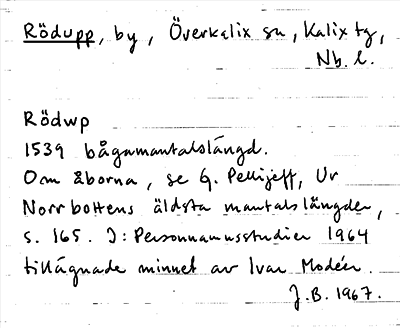 Rödupp, by, Överkalix sn, Kalix tg,
Nb. l.
Rödwp
1539 bågamantalslängd.
Om åborna, se G. Pellijeff, Ur
Norrbottens äldsta mantalslängder,
s. 165. I: Personnamnsstudier 1964
tillägnade minnet av Ivar Modéer.
J.B. 1967.